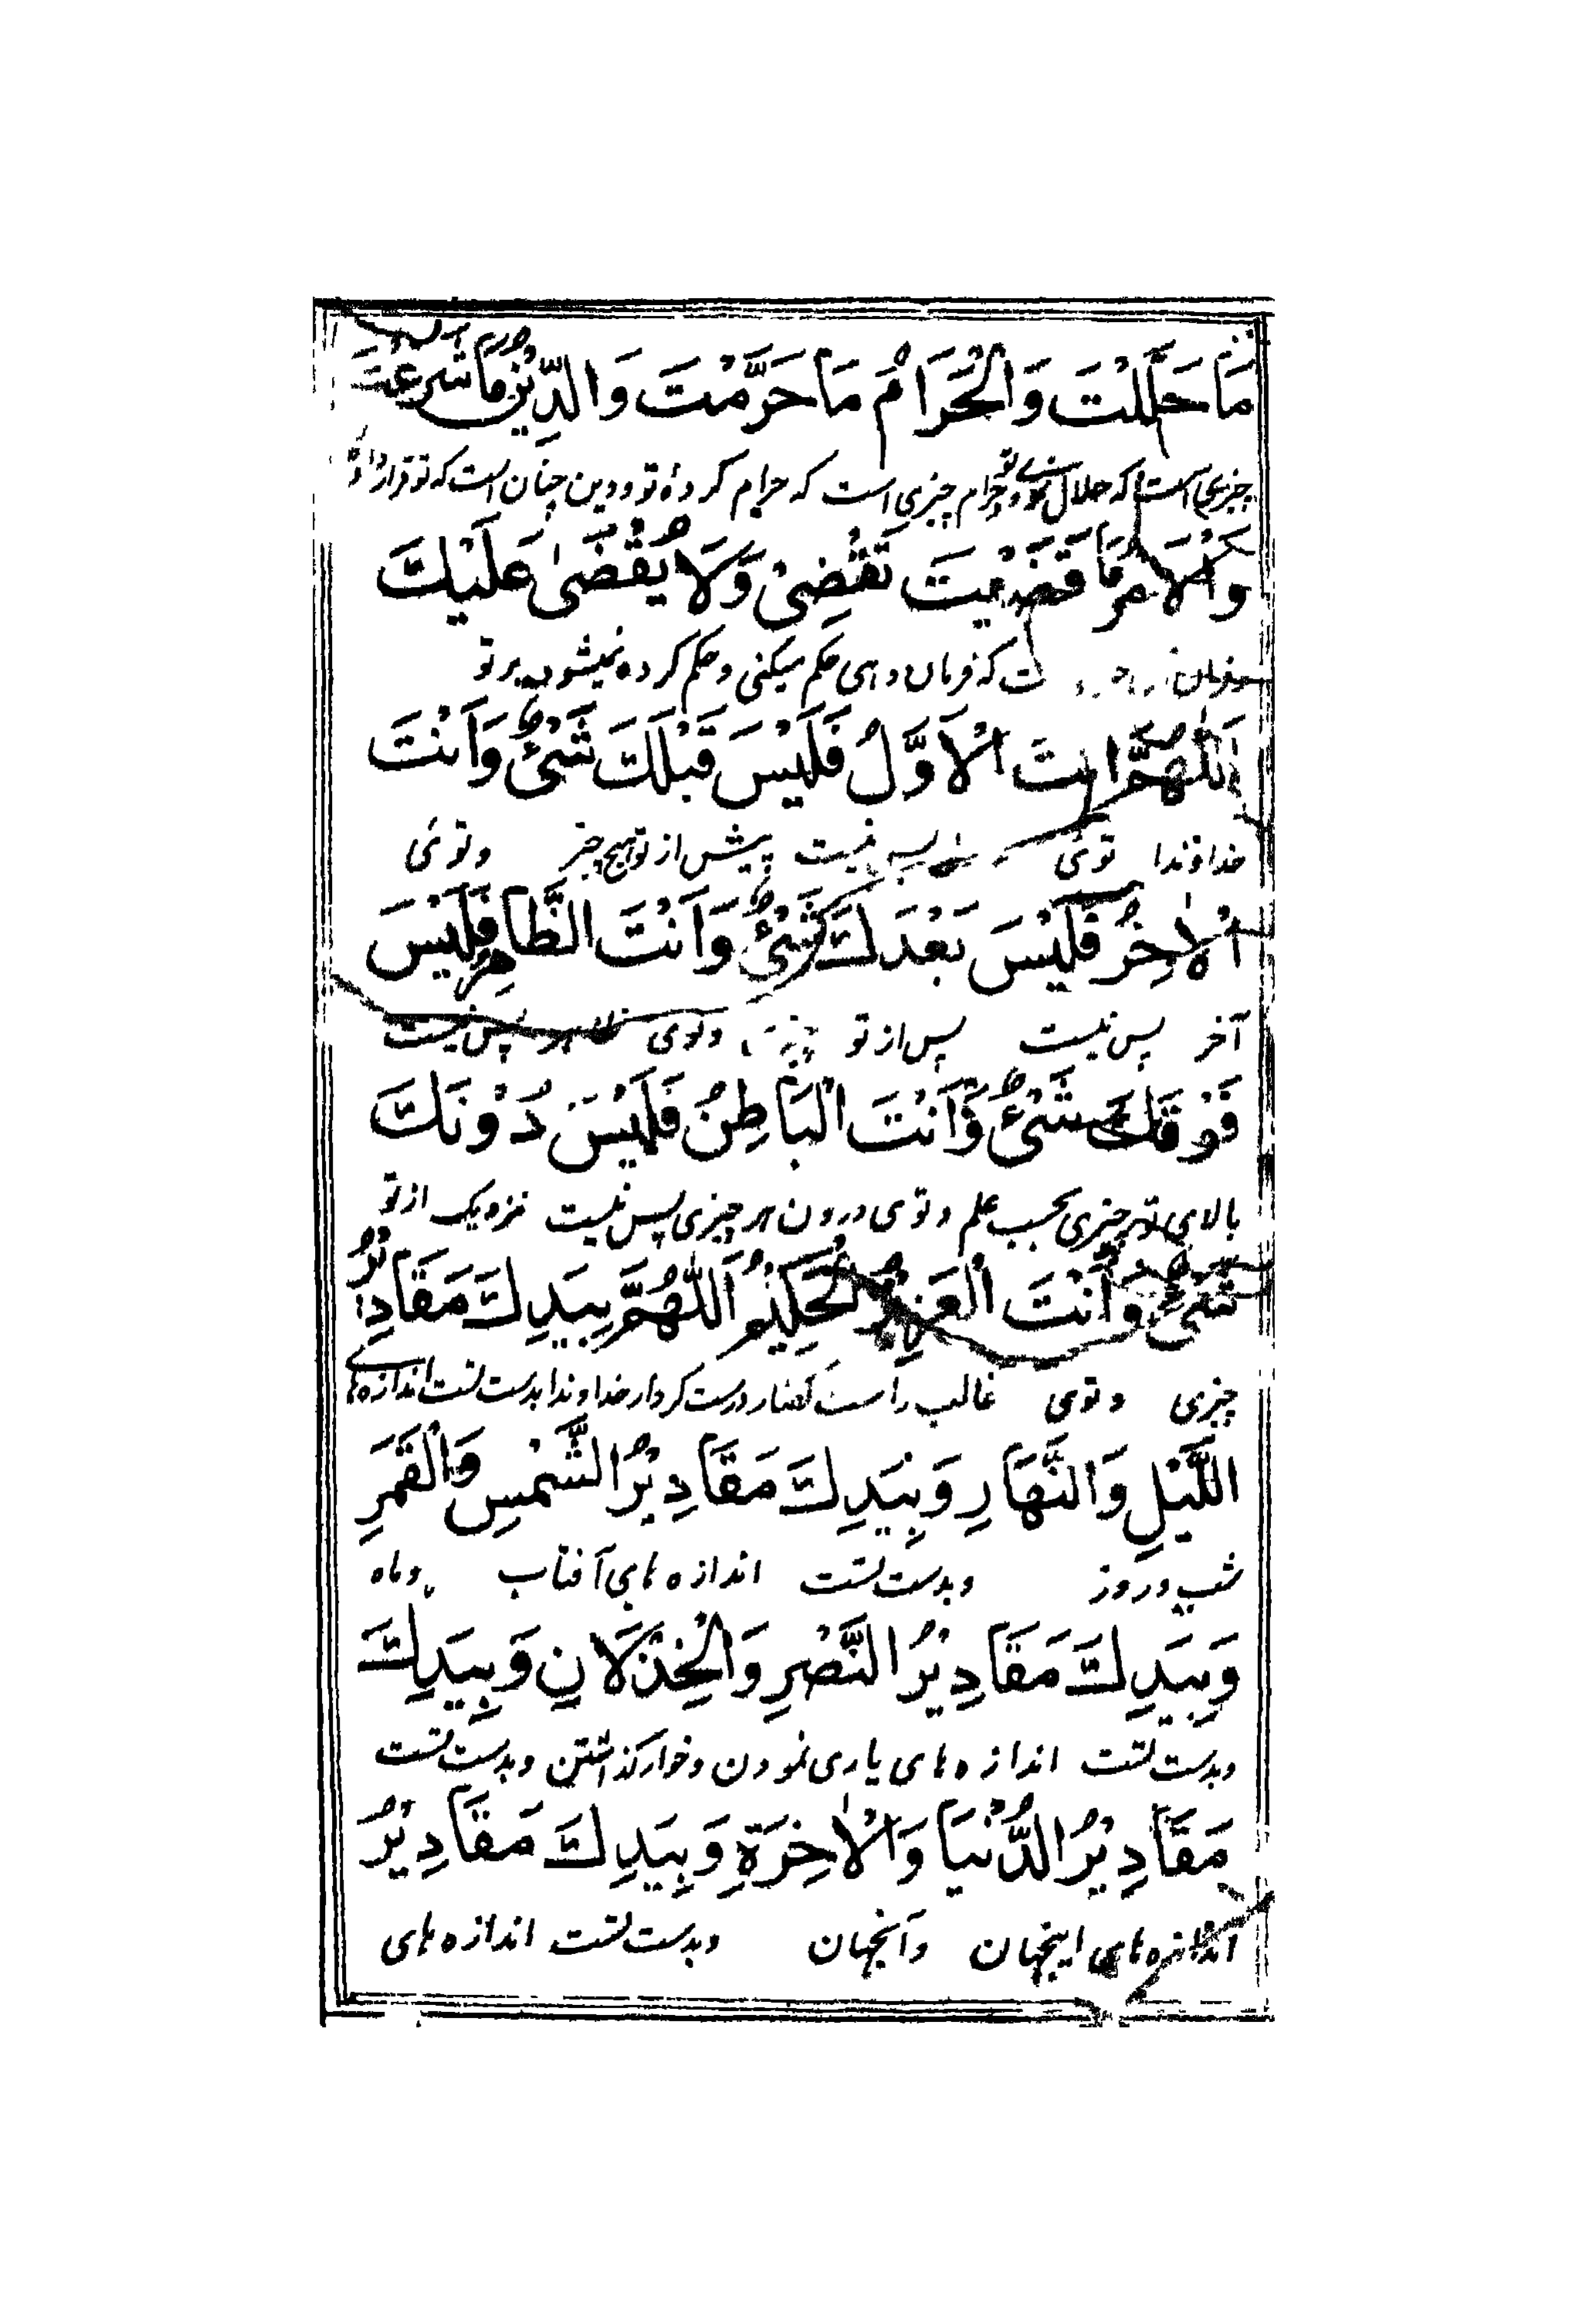 مَا حَلَّلْتَ وَالْحَرَامُ مَا حَرَّمْتَ وَالدِّيْنُ مَا شَرَعْتَ
چیزی است که حلال نمودی تو و حرام چیزی است که حرام کردهٔ تو و دین چنان است که تو قرار داد
وَالْاَمْرُ مَا قَضَيْتَ تَقْضِىْ وَلَا يُقْضٰى عَلَيْكَ
که فرمان دهی حکم میکنی و حکم کرده نمیشود بر تو
اَللّٰهُمَّ اَنْتَ الْاَوَّلُ فَلَيْسَ قَبْلَكَ شَىْءٌ وَاَنْتَ
خداوندا توئی پس نیست پیش از تو هیچ چیز و توئی
الْاٰخِرُ فَلَيْسَ بَعْدَكَ شَىْءٌ وَاَنْتَ الظَّاهِرُ فَلَيْسَ
آخر پس نیست پس از تو چیزی و توی ظاهر پس نیست
فَوْقَكَ شَىْءٌ وَّاَنْتَ الْبَاطِنُ فَلَيْسَ دُوْنَكَ
بالای تو چیزی بحسب علم و توی درون هر چیزی پس نیست نزدیک از تو
شَىْءٌ وَّاَنْتَ الْعَزِيْزُ الْحَكِيْمُ اَللّٰهُمَّ بِيَدِكَ مَقَادِيْرُ
چیزی و توی غالب راست گفتار درست کردار خداوندا بدست تست اندازه های
اللَّيْلِ وَالنَّهَارِ وَبِيَدِكَ مَقَادِيْرُ الشَّمْسِ وَالْقَمَرِ
شب و روز و بدست تست اندازه های آفتاب و ماه
وَبِيَدِكَ مَقَادِيْرُ النَّصْرِ وَالْخِذْلَانِ وَبِيَدِكَ
و بدست تست اندازه های یاری نمودن و خوار گذاشتن و بدست تست
مَقَادِيْرُ الدُّنْيَا وَالْاٰخِرَةِ وَبِيَدِكَ مَقَادِيْرُ
اندازه های اینجهان و آنجهان و بدست تست اندازه های